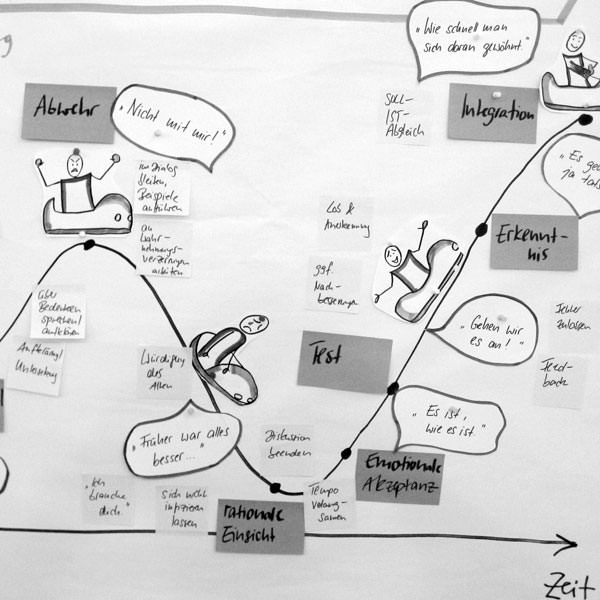 Abwehr
„Nicht mit mir!"
im Dialog
bleiben,
Beispiele
anführen
an
Wahr-
nehmungs-
verzerrungen
arbeiten
über
Bedenken
sprechen/
aufklären
Aufklärung/
Würdigung
des
Alten
„Früher war alles
besser..."
„Ich
brauche
dich."
sich nicht
infizieren
lassen
rationale
Einsicht
Diskussion
beenden
Tempo
verlang-
samen
Emotionale
Akzeptanz
„Es ist,
wie es ist."
Test
ggf.
Nach-
besserungen
Lob &
Anerkennung
„Gehen wir
es an!"
Fehler
zulassen
Feed-
back
Erkennt-
nis
„Es
ja
Integration
SOLL-
IST-
Abgleich
„Wie schnell man
sich daran gewöhnt."
Zeit